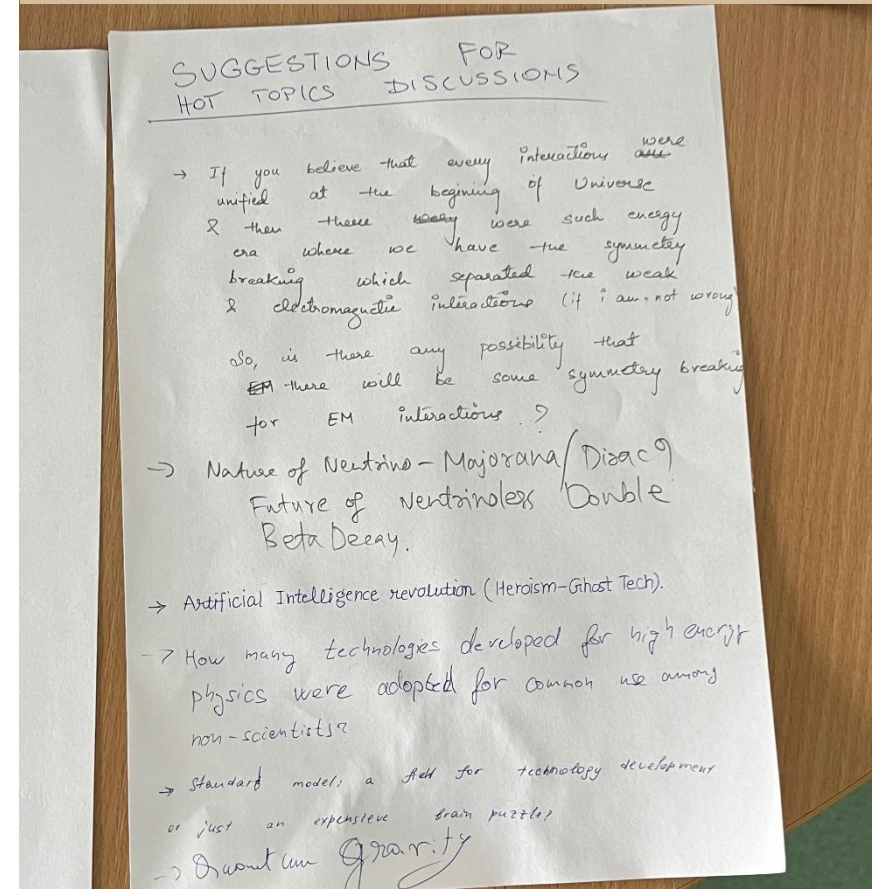 SUGGESTIONS FOR
HOT TOPICS DISCUSSIONS
→ If you believe that every interactions were
unified at the begining of Universe
& then there were such energy
era where we have the symmetry
breaking which separated the weak
& electromagnetic interactions (if i am not wrong
So, is there any possibility that
there will be some symmetry breaking
for EM interactions ?
→ Nature of Neutrino - Majorana/Dirac?
Future of Neutrinoless Double
Beta Decay.
→ Artificial Intelligence revolution (Heroism-Ghost Tech).
→ How many technologies developed for high energy
physics were adopted for common use among
non-scientists?
→ Standard model: a field for technology development
or just an expensieve brain puzzle?
→ Quantum Gravity